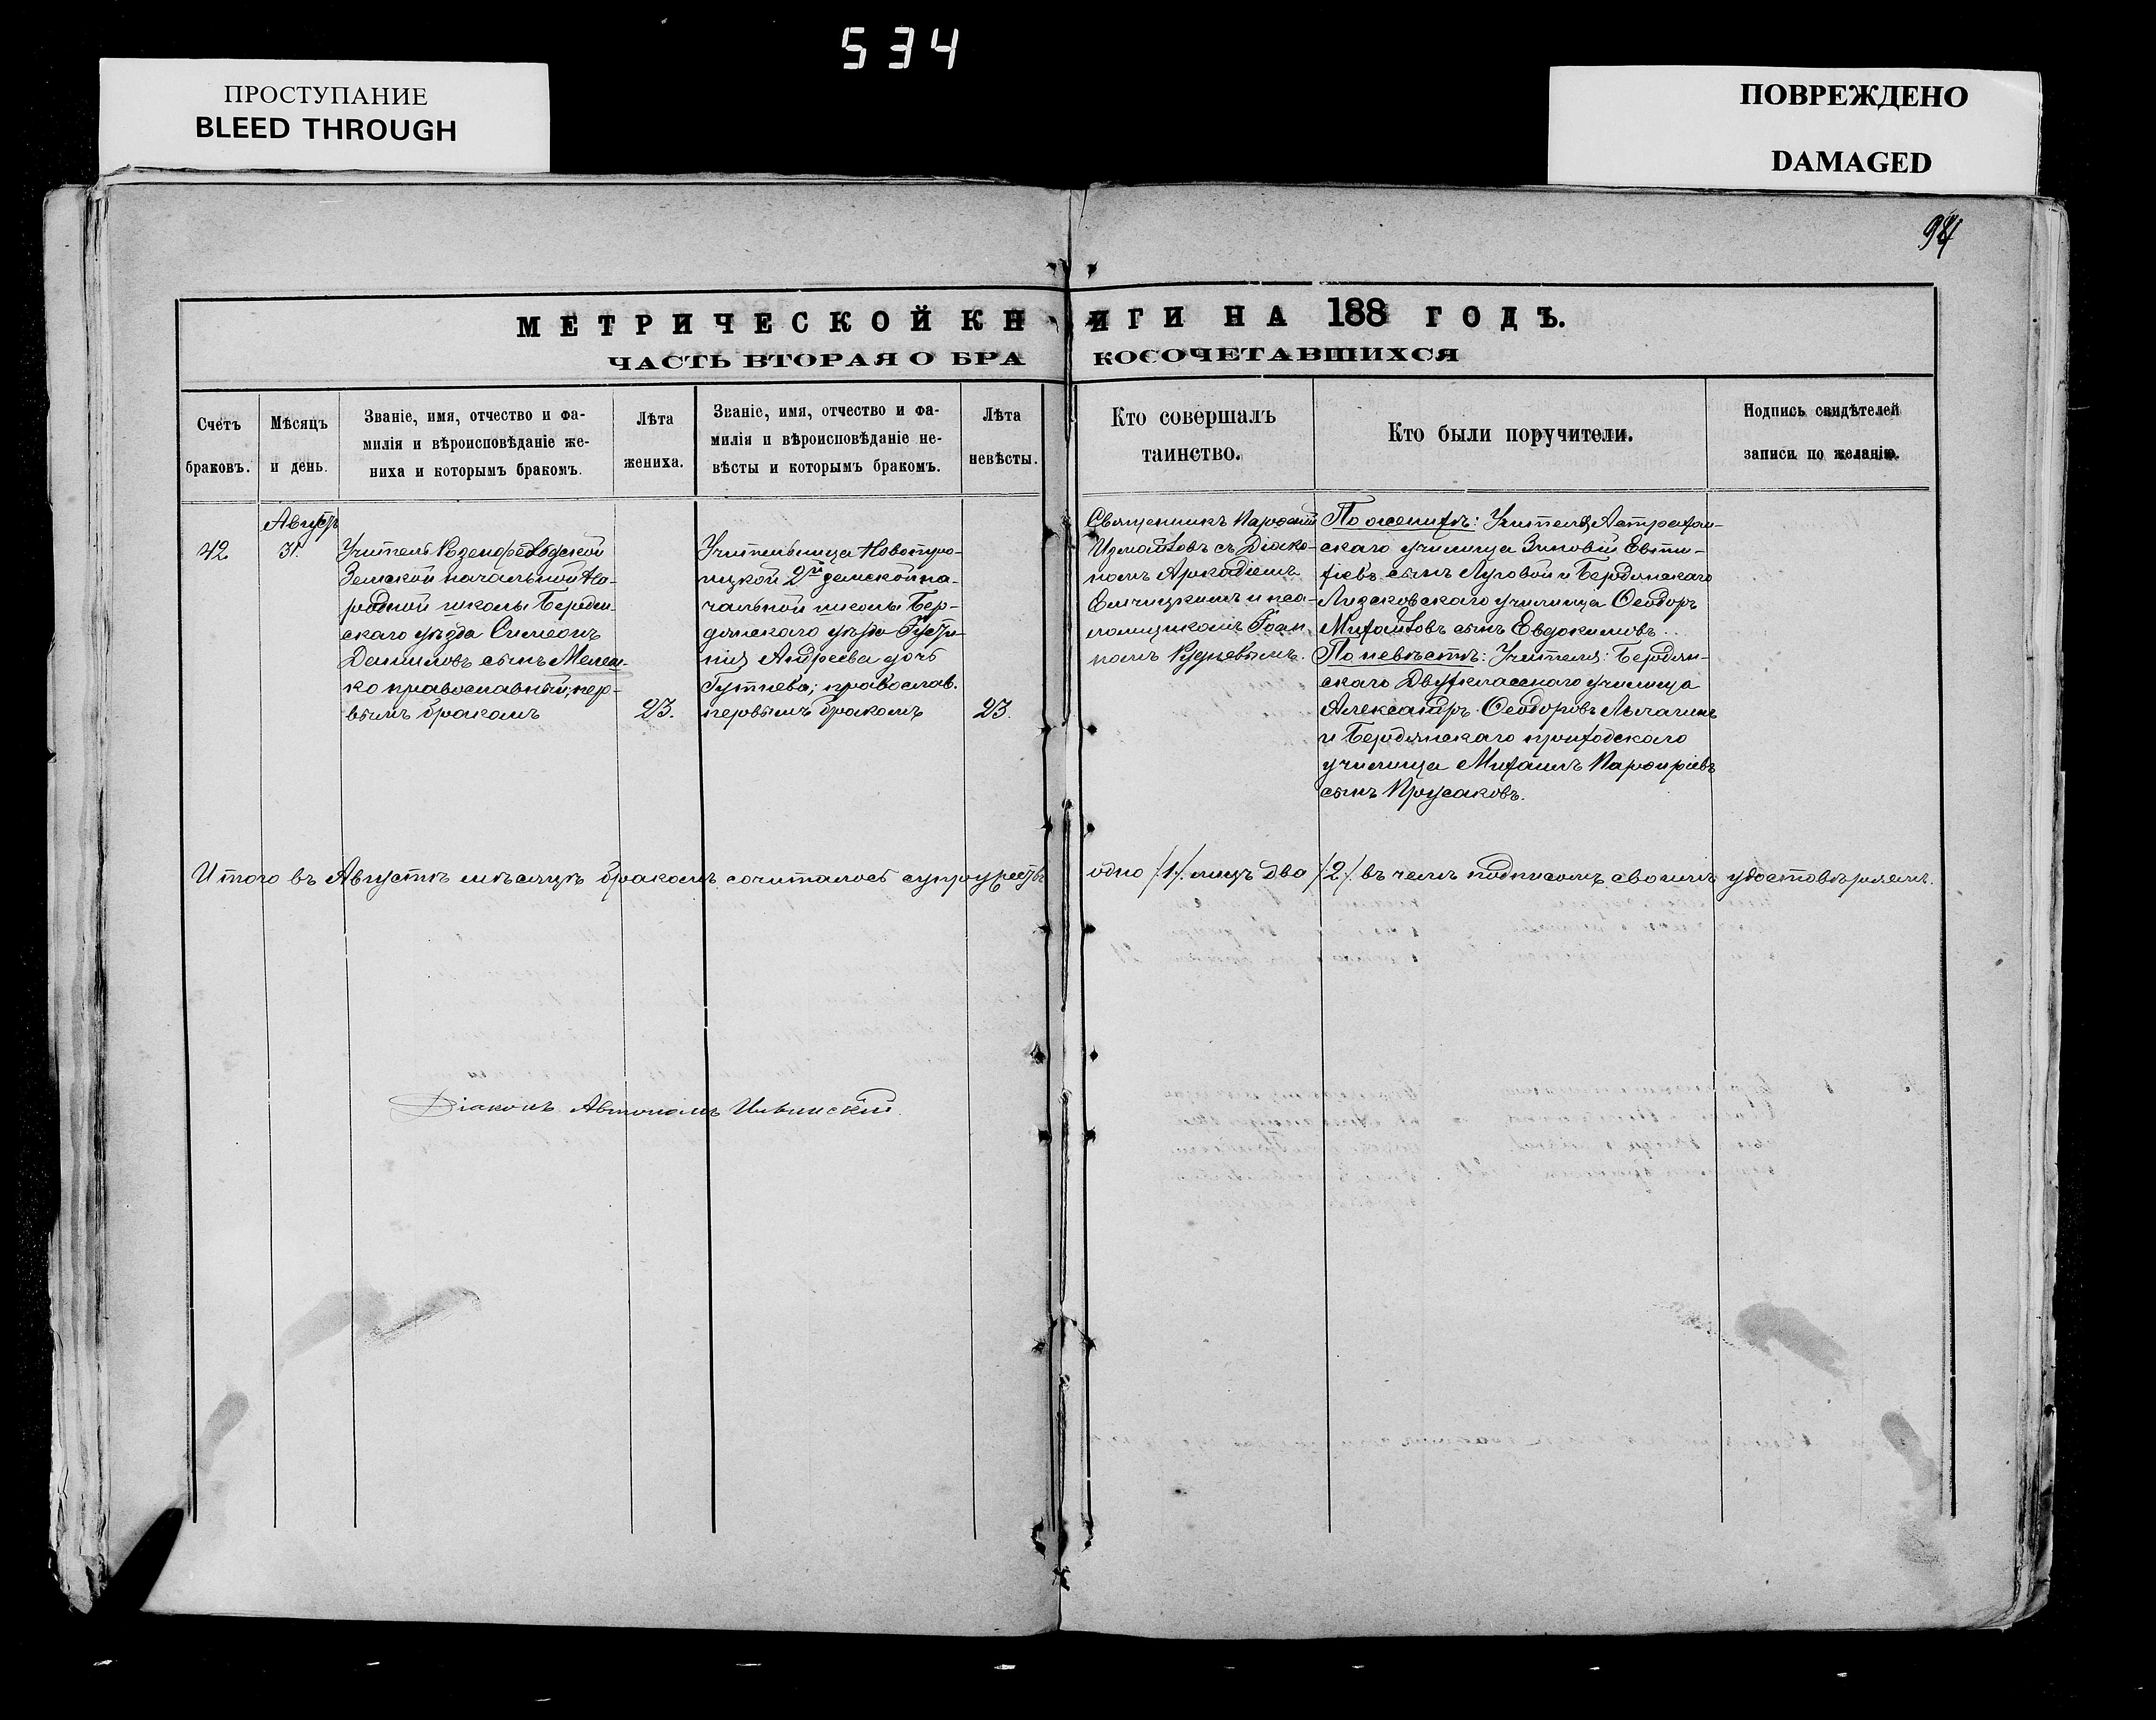 534
ПРОСТУПАНИЕ
BLEED THROUGH
ПОВРЕЖДЕНО
DAMAGED
94
МЕТРИЧЕСКОЙ КНИГИ НА 188 ГОДЪ.
ЧАСТЬ ВТОРАЯ О БРАКОСОЧЕТАВШИХСЯ
Счетъ
браковъ.
Мѣсяцъ
и день.
Званіе, имя, отчество и фа-
милія и вѣроисповѣданіе же-
ниха и которымъ бракомъ.
Лѣта
жениха.
Званіе, имя, отчество и фа-
милія и вѣроисповѣданіе не-
вѣсты и которымъ бракомъ.
Лѣта
невѣсты.
Кто совершалъ
таинство.
Кто были поручители.
Подпись свидѣтелей
записи по желанію.
42
Августъ
31.
Учитель Розенфельдской
Земской начальной На-
родной школы Бердян-
скаго уѣзда Симеонъ
Даниловъ сынъ Мелеш-
ко православный; пер-
вымъ бракомъ
23.
Учительница Новотро-
ицкой 2й земской на-
чальной школы Бер-
дянскаго уѣзда Густи-
нія Андреева дочь
Гутнева; православ.
первымъ бракомъ
23.
Священникъ Парѳеній
Измайловъ съ Діако-
номъ Аркадіемъ
и пса-
ломщикомъ Іоан-
номъ Рудневымъ.
По женихѣ: Учителя Астрахан-
скаго училища Зиновій Евти-
фіевъ сынъ Луговой и Бердянскаго
Лизковскаго училища Ѳеодоръ
Михайловъ сынъ Евдокимовъ.
По невѣстѣ: Учителя: Бердян-
скаго Двухкласснаго училища
Александръ Ѳеодоровъ
и Бердянскаго приходскаго
училища Михаилъ Парфиріевъ
сынъ Прусаковъ.
Итого въ Августѣ мѣсяцѣ бракомъ сочиталось супружествъ одно /1/. лицъ два /2/ въ чемъ подписомъ своимъ удостовѣряемъ.
Діаконъ Автономъ Ильинскій.